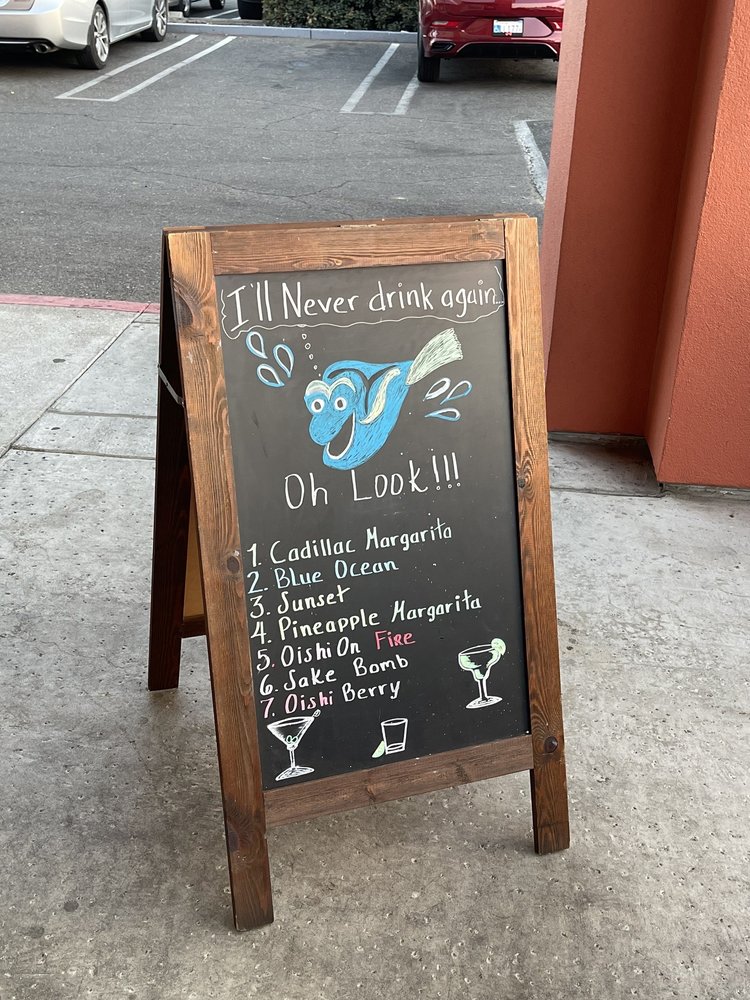 I'll Never drink again...
Oh Look!!!
1. Cadillac Margarita
2. Blue Ocean
3. Sunset
4. Pineapple Margarita
5. Oishi On Fire
6. Sake Bomb
7. Oishi Berry